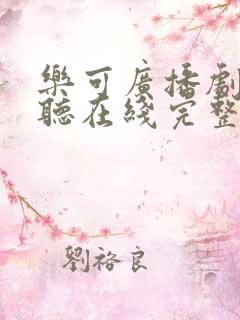 樂可廣播劇
聽在綫完整
劉袼良